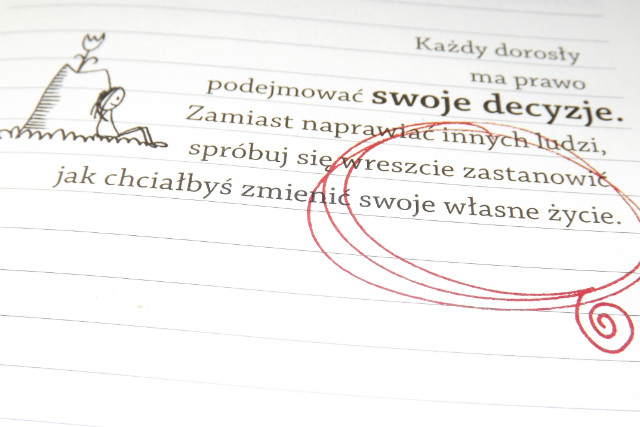 Każdy dorosły
ma prawo
podejmować swoje decyzje.
Zamiast naprawiać innych ludzi,
spróbuj się wreszcie zastanowić
jak chciałbyś zmienić swoje własne życie.